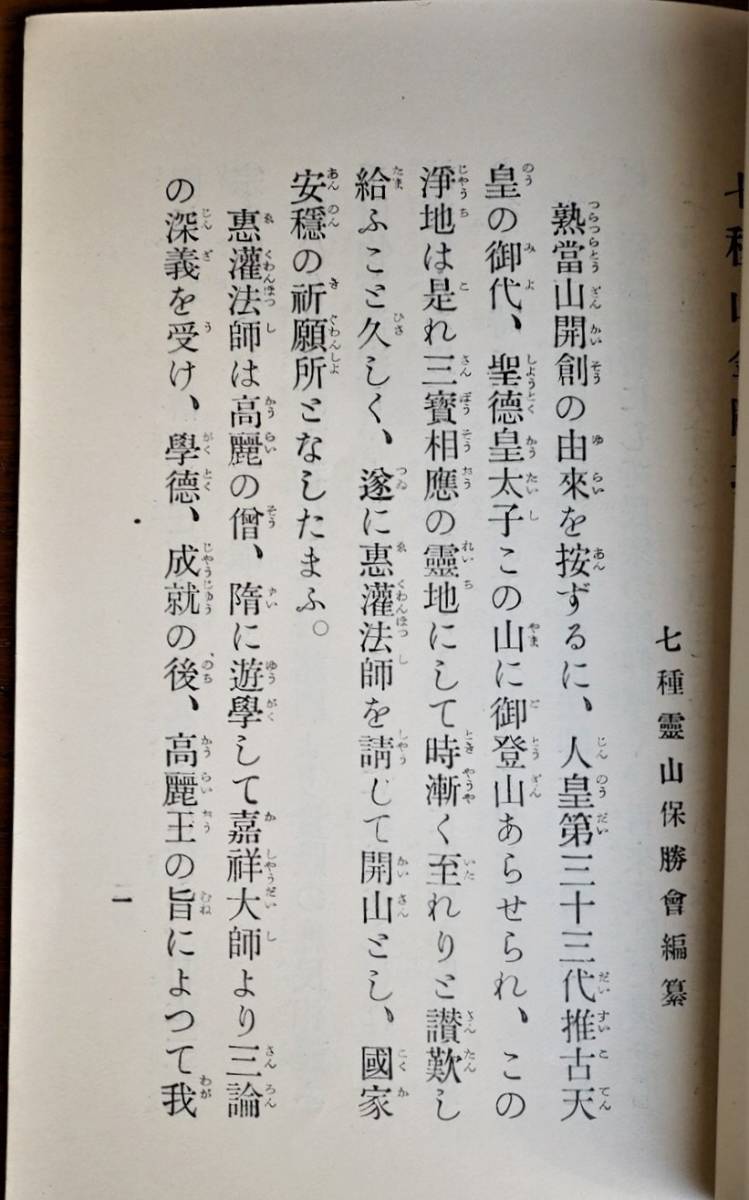 七種靈山保勝會編纂
熟當山開創の由來を按ずるに、人皇第三十三代推古天
皇の御代、聖德皇太子この山に御登山あらせられ、この
淨地は是れ三寶相應の靈地にして時漸く至れりと讃歎し
給ふこと久しく、遂に惠灌法師を請じて開山とし、國家
安穩の祈願所となしたまふ。
惠灌法師は高麗の僧、隋に遊學して嘉祥大師より三論
の深義を受け、學德、成就の後、高麗王の旨によつて我
一